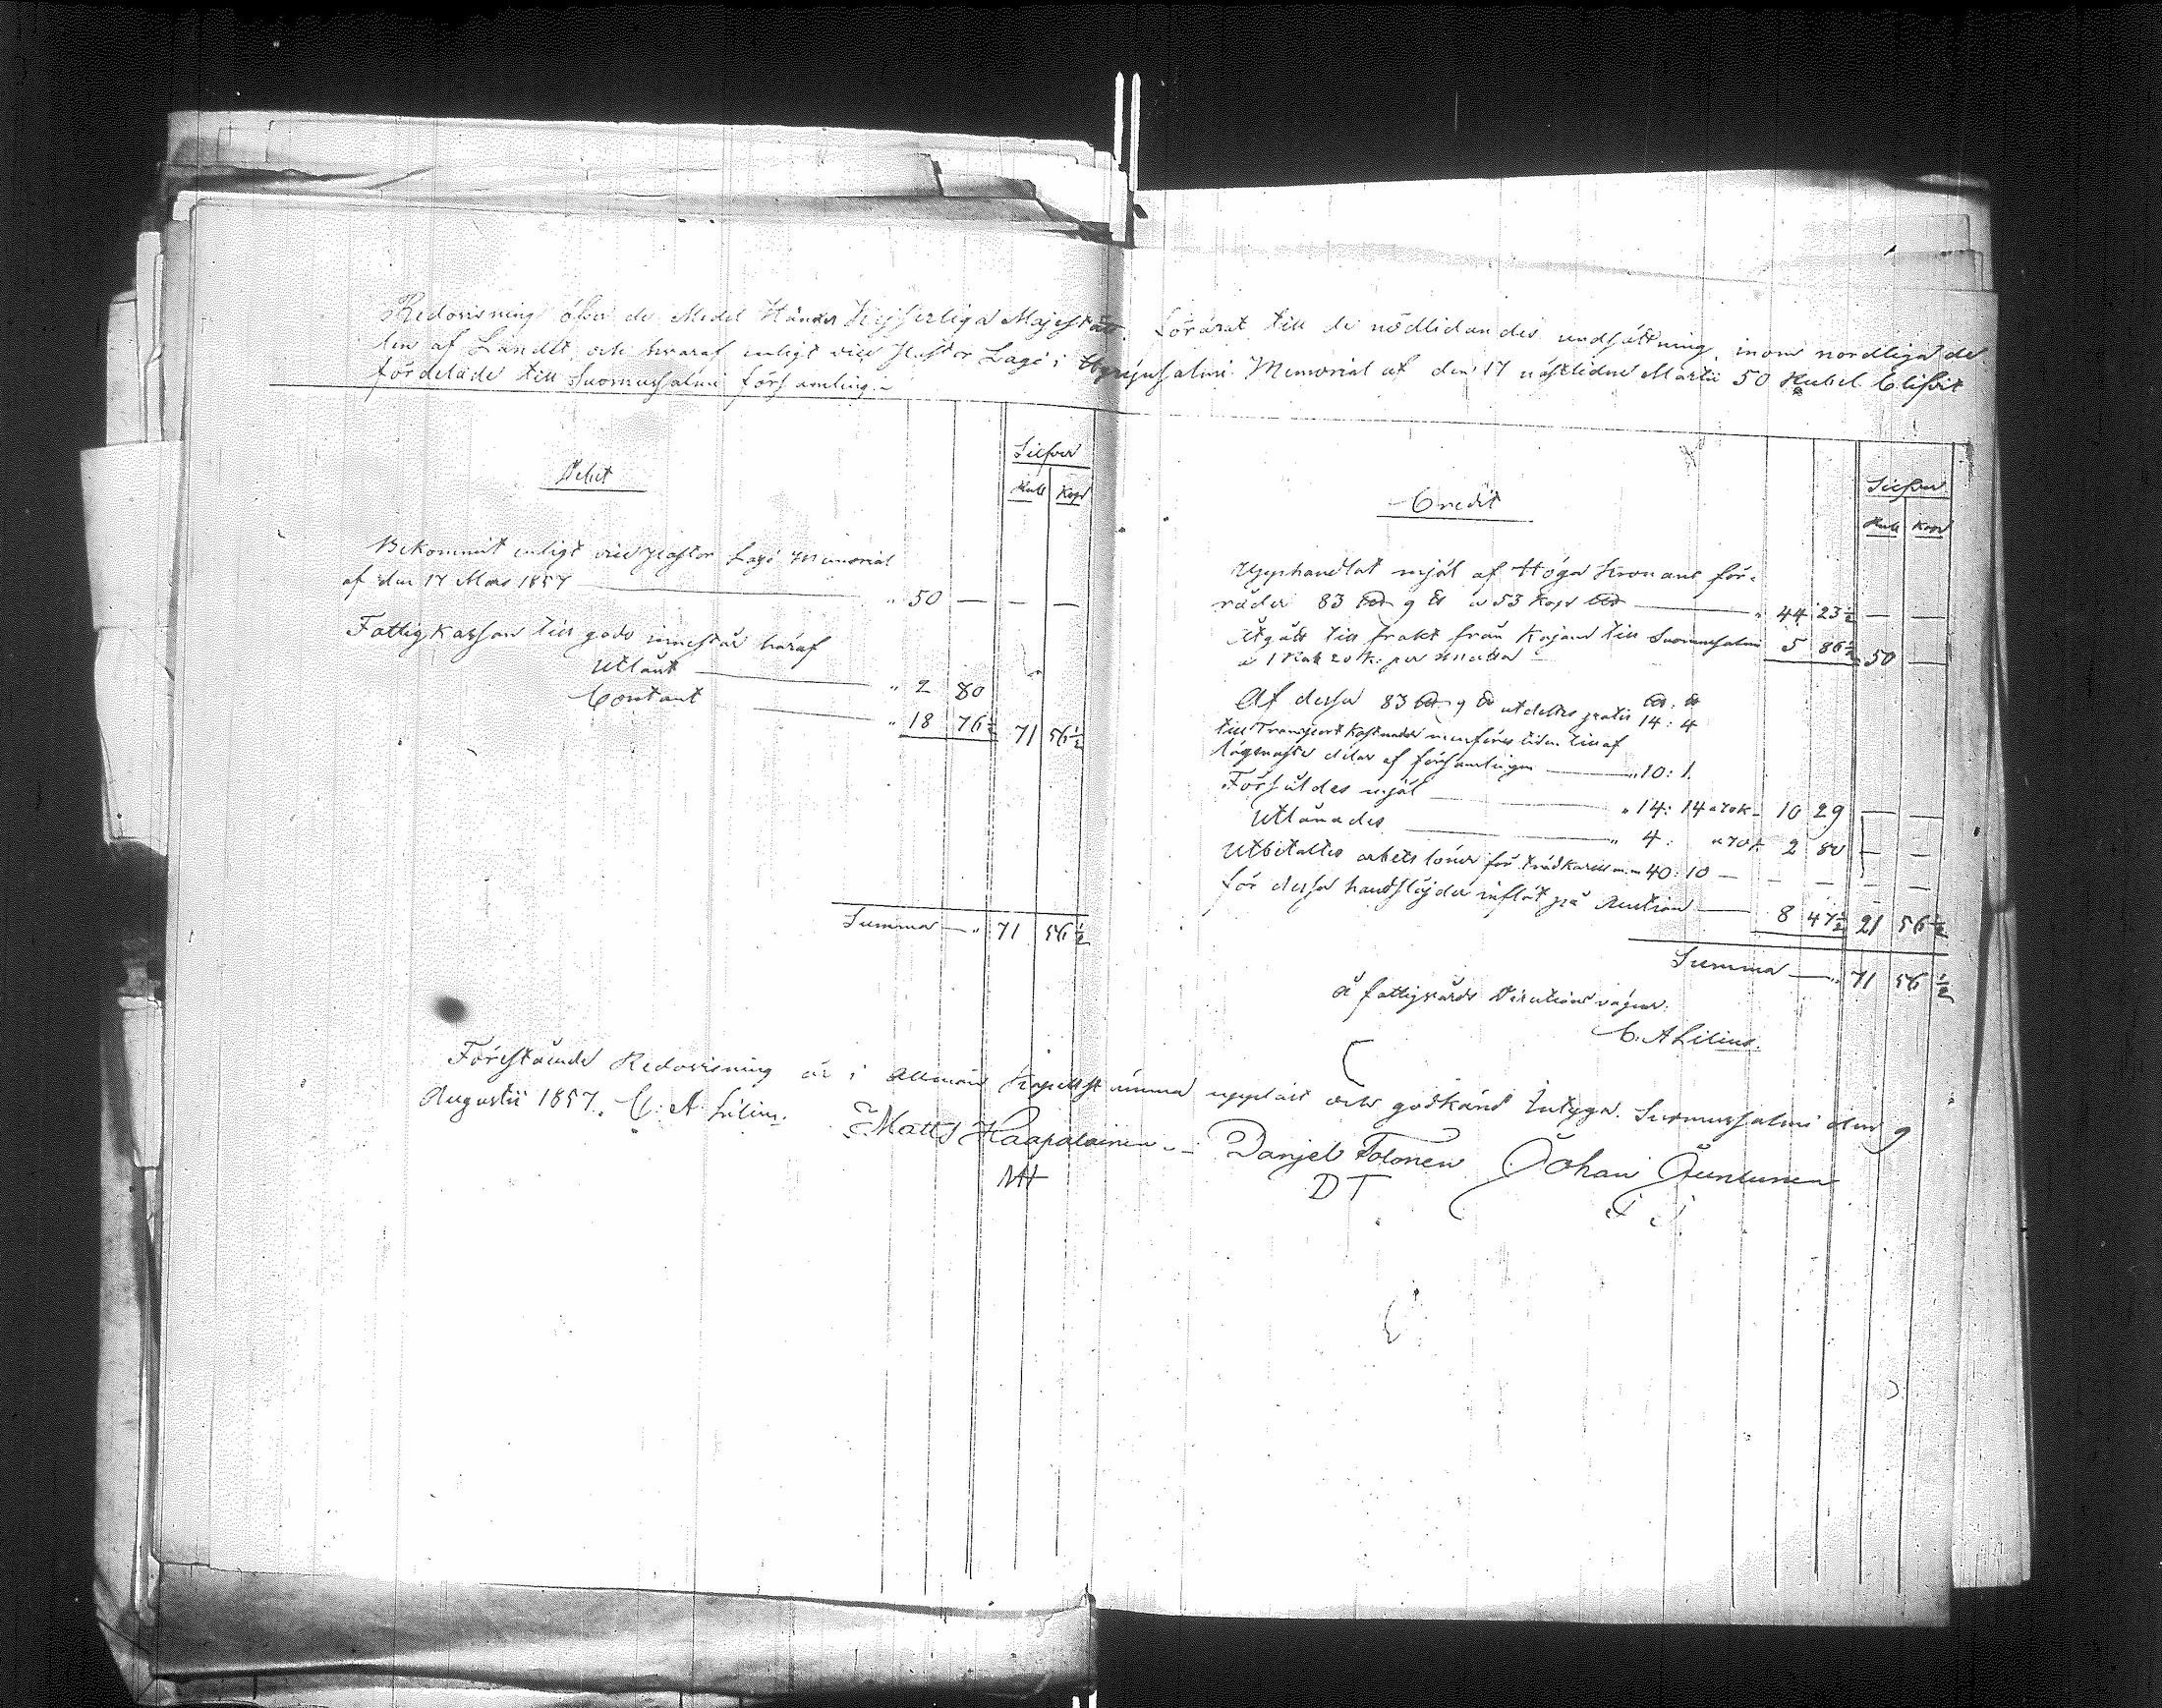 Redovisning öfver de Medel Hans Kejserliga Majestät förärat till de nödlidandes undsättning inom nordliga de
len af Landet och hvaraf enligt Pastor Lagi i Hyrynsalmi Memorial af den 17 nästlidne Martii 50 Rubel
fördelade till Suomussalmi församling.
Debet
Silfver
Rub Kop
Bekommit enligt Pastor Lagi Memorial
af den 17 Mars 1857 " 50 — — —
Fattigkassan till godo innestår häraf
Utlånt " 2 80
Contant " 18 76½ 71 56½
Summa — " 71 56½
Credit
Silfver
Rub Kop
Upphandlat mjöl af Höga Kronans för-
råder 83 9 a 53 Kop " 44 23½ — —
Utgått till frakt från Kajana till Suomussalmi 5 86½ 50 —
a 1 Rub 20 k. per
Af dessa 83 9 utdeltes gratis 14: 4
till Transport Kostnader till af
lägsnaste delar af församlingen — " 10: 1.
Försåldes mjöl — " 14: 14 a 70 k — 10 29 — —
Utlånades — " 4: a 70 k 2 80 — —
Utbetaltes arbets löner för 40: 10 — — — — —
för dessa handslöjder inflöt på Auction — 8 47½ 21 56½
Summa — " 71 56½
å fattigvårds Direktions vägnar:
C. A Lilius.
Förestående Redovisning är i allmän Kapellstämma uppläst och godkänd intyga. Suomussalmi den 9
Augustii 1857. C. A. Lilius. Matts Haapalainen — Danjel Tolonen Johan Juntunen
MH DT J J